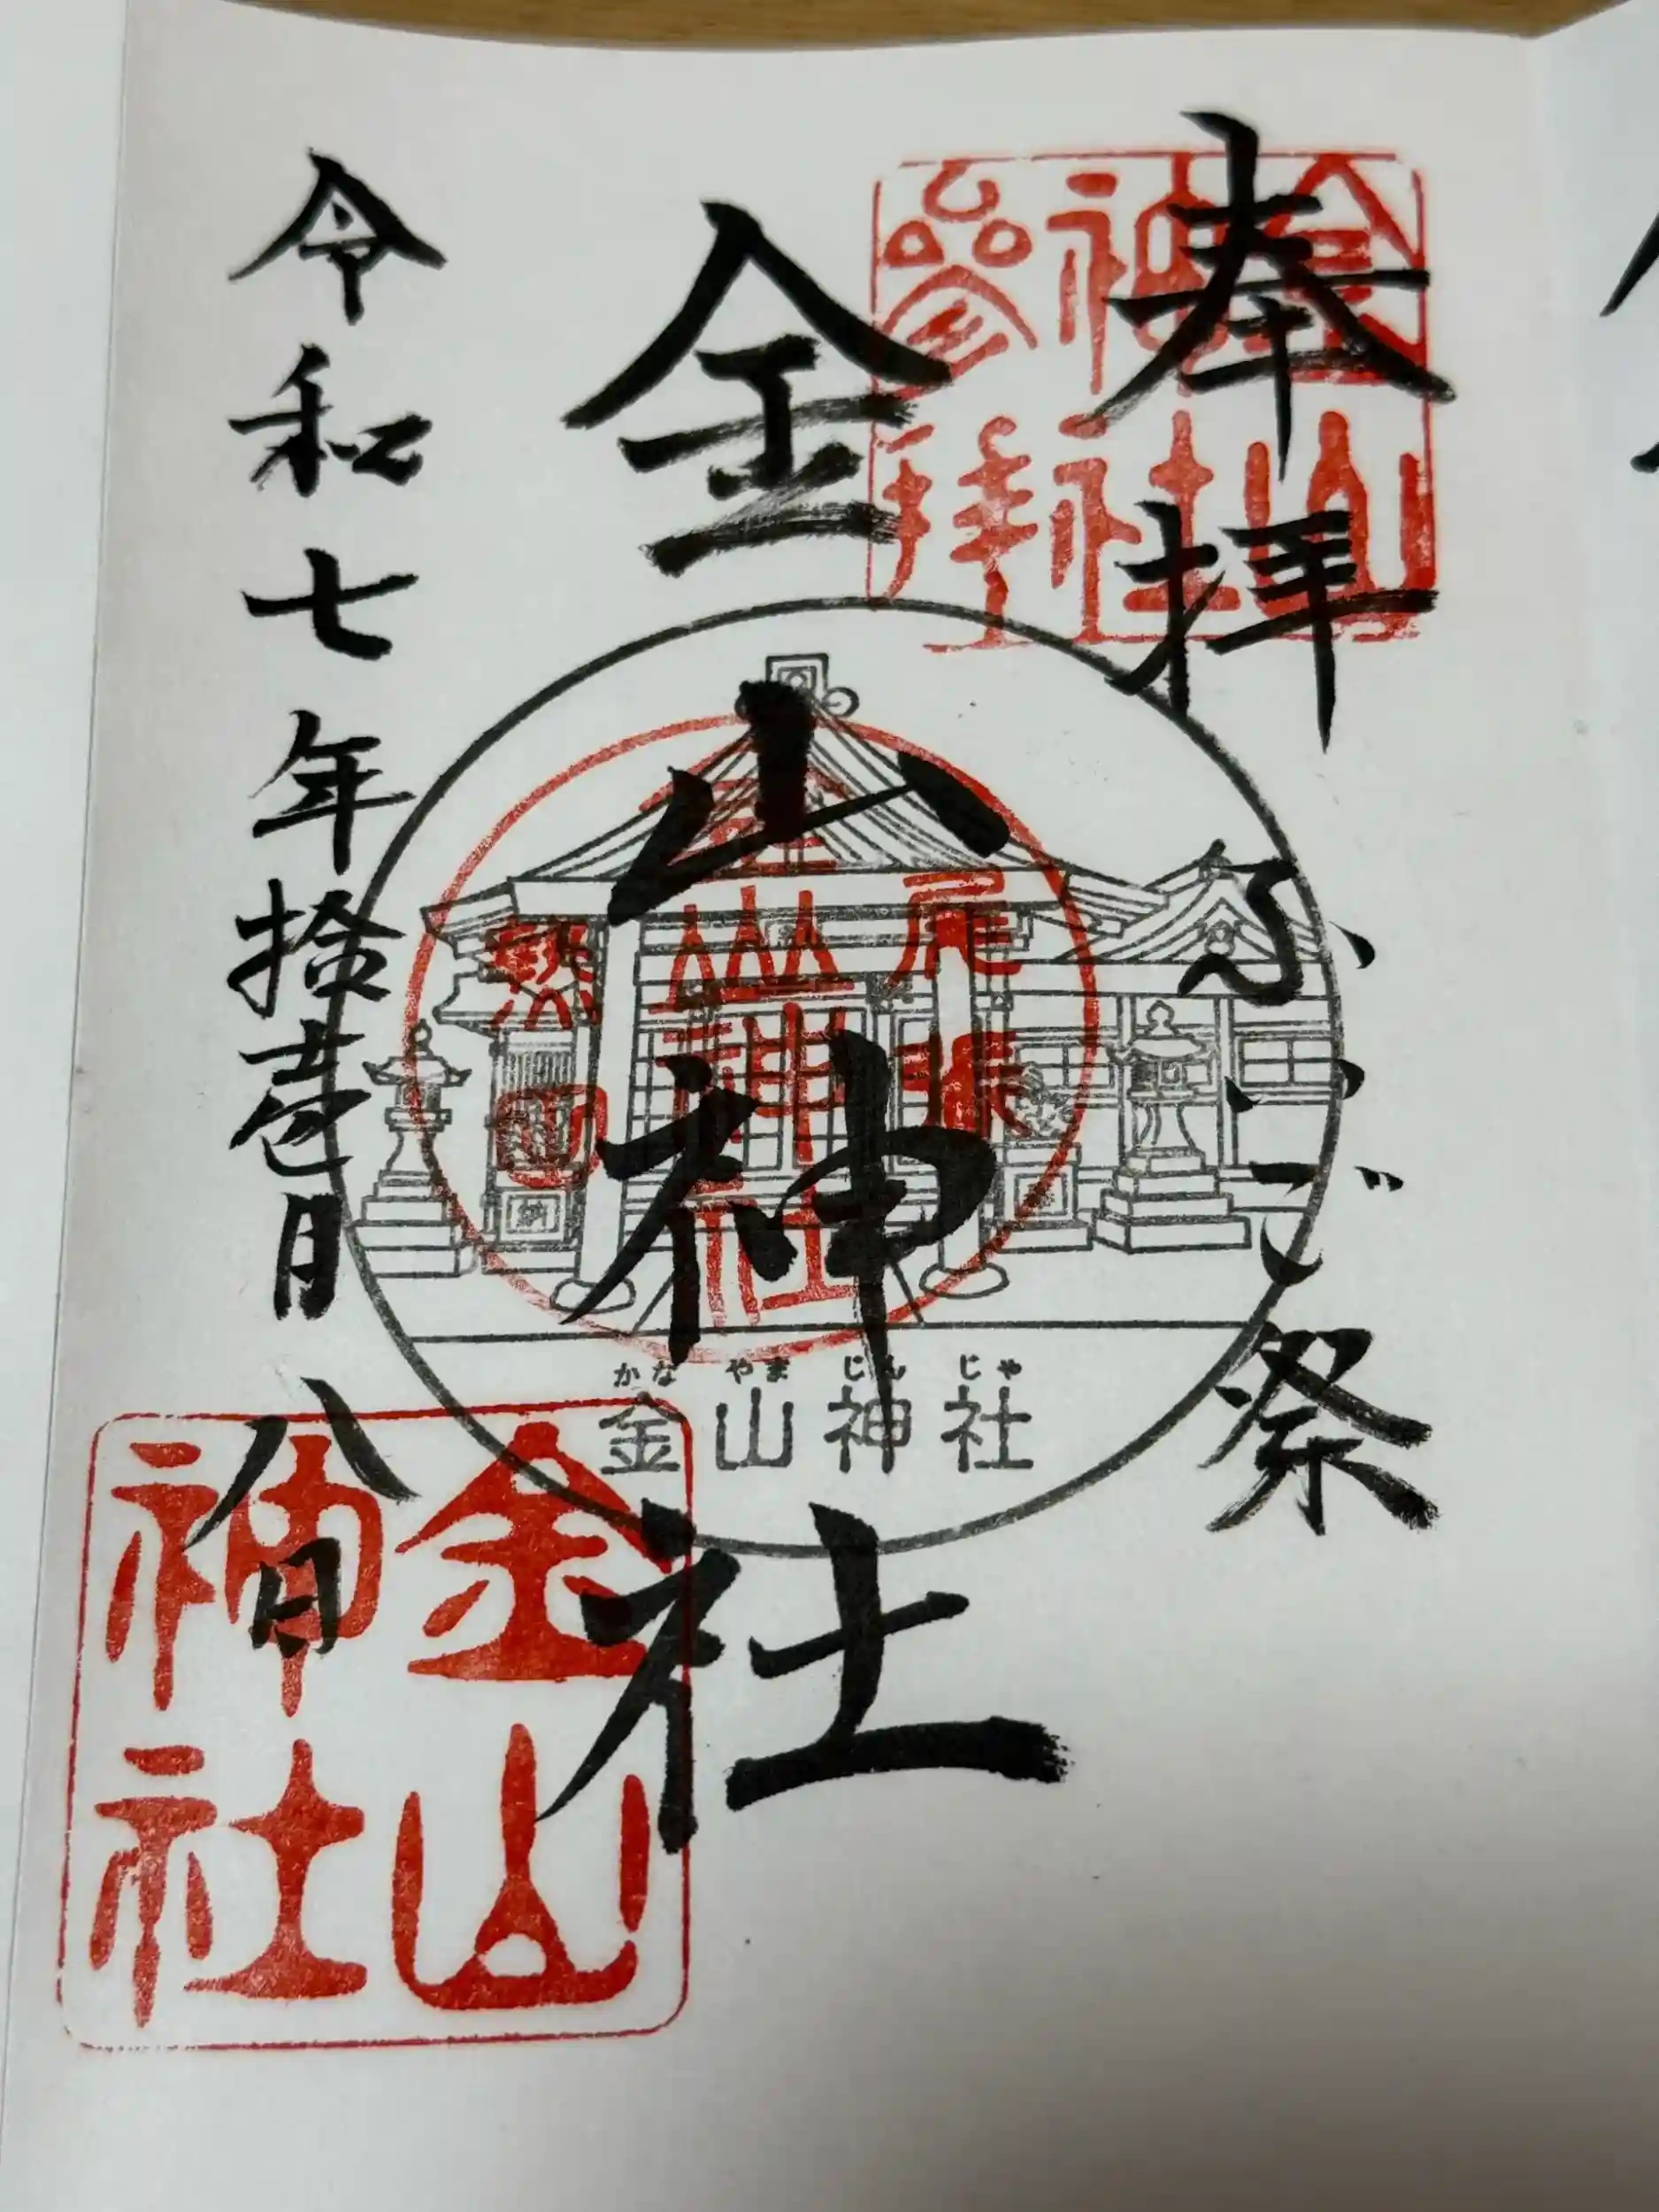 奉拝
ふいご祭
金山神社
令和七年拾壱月八日
金山
神社
参拝
尾張
金山神社
熱田
かな やま じん じゃ
金山神社
金山
神社